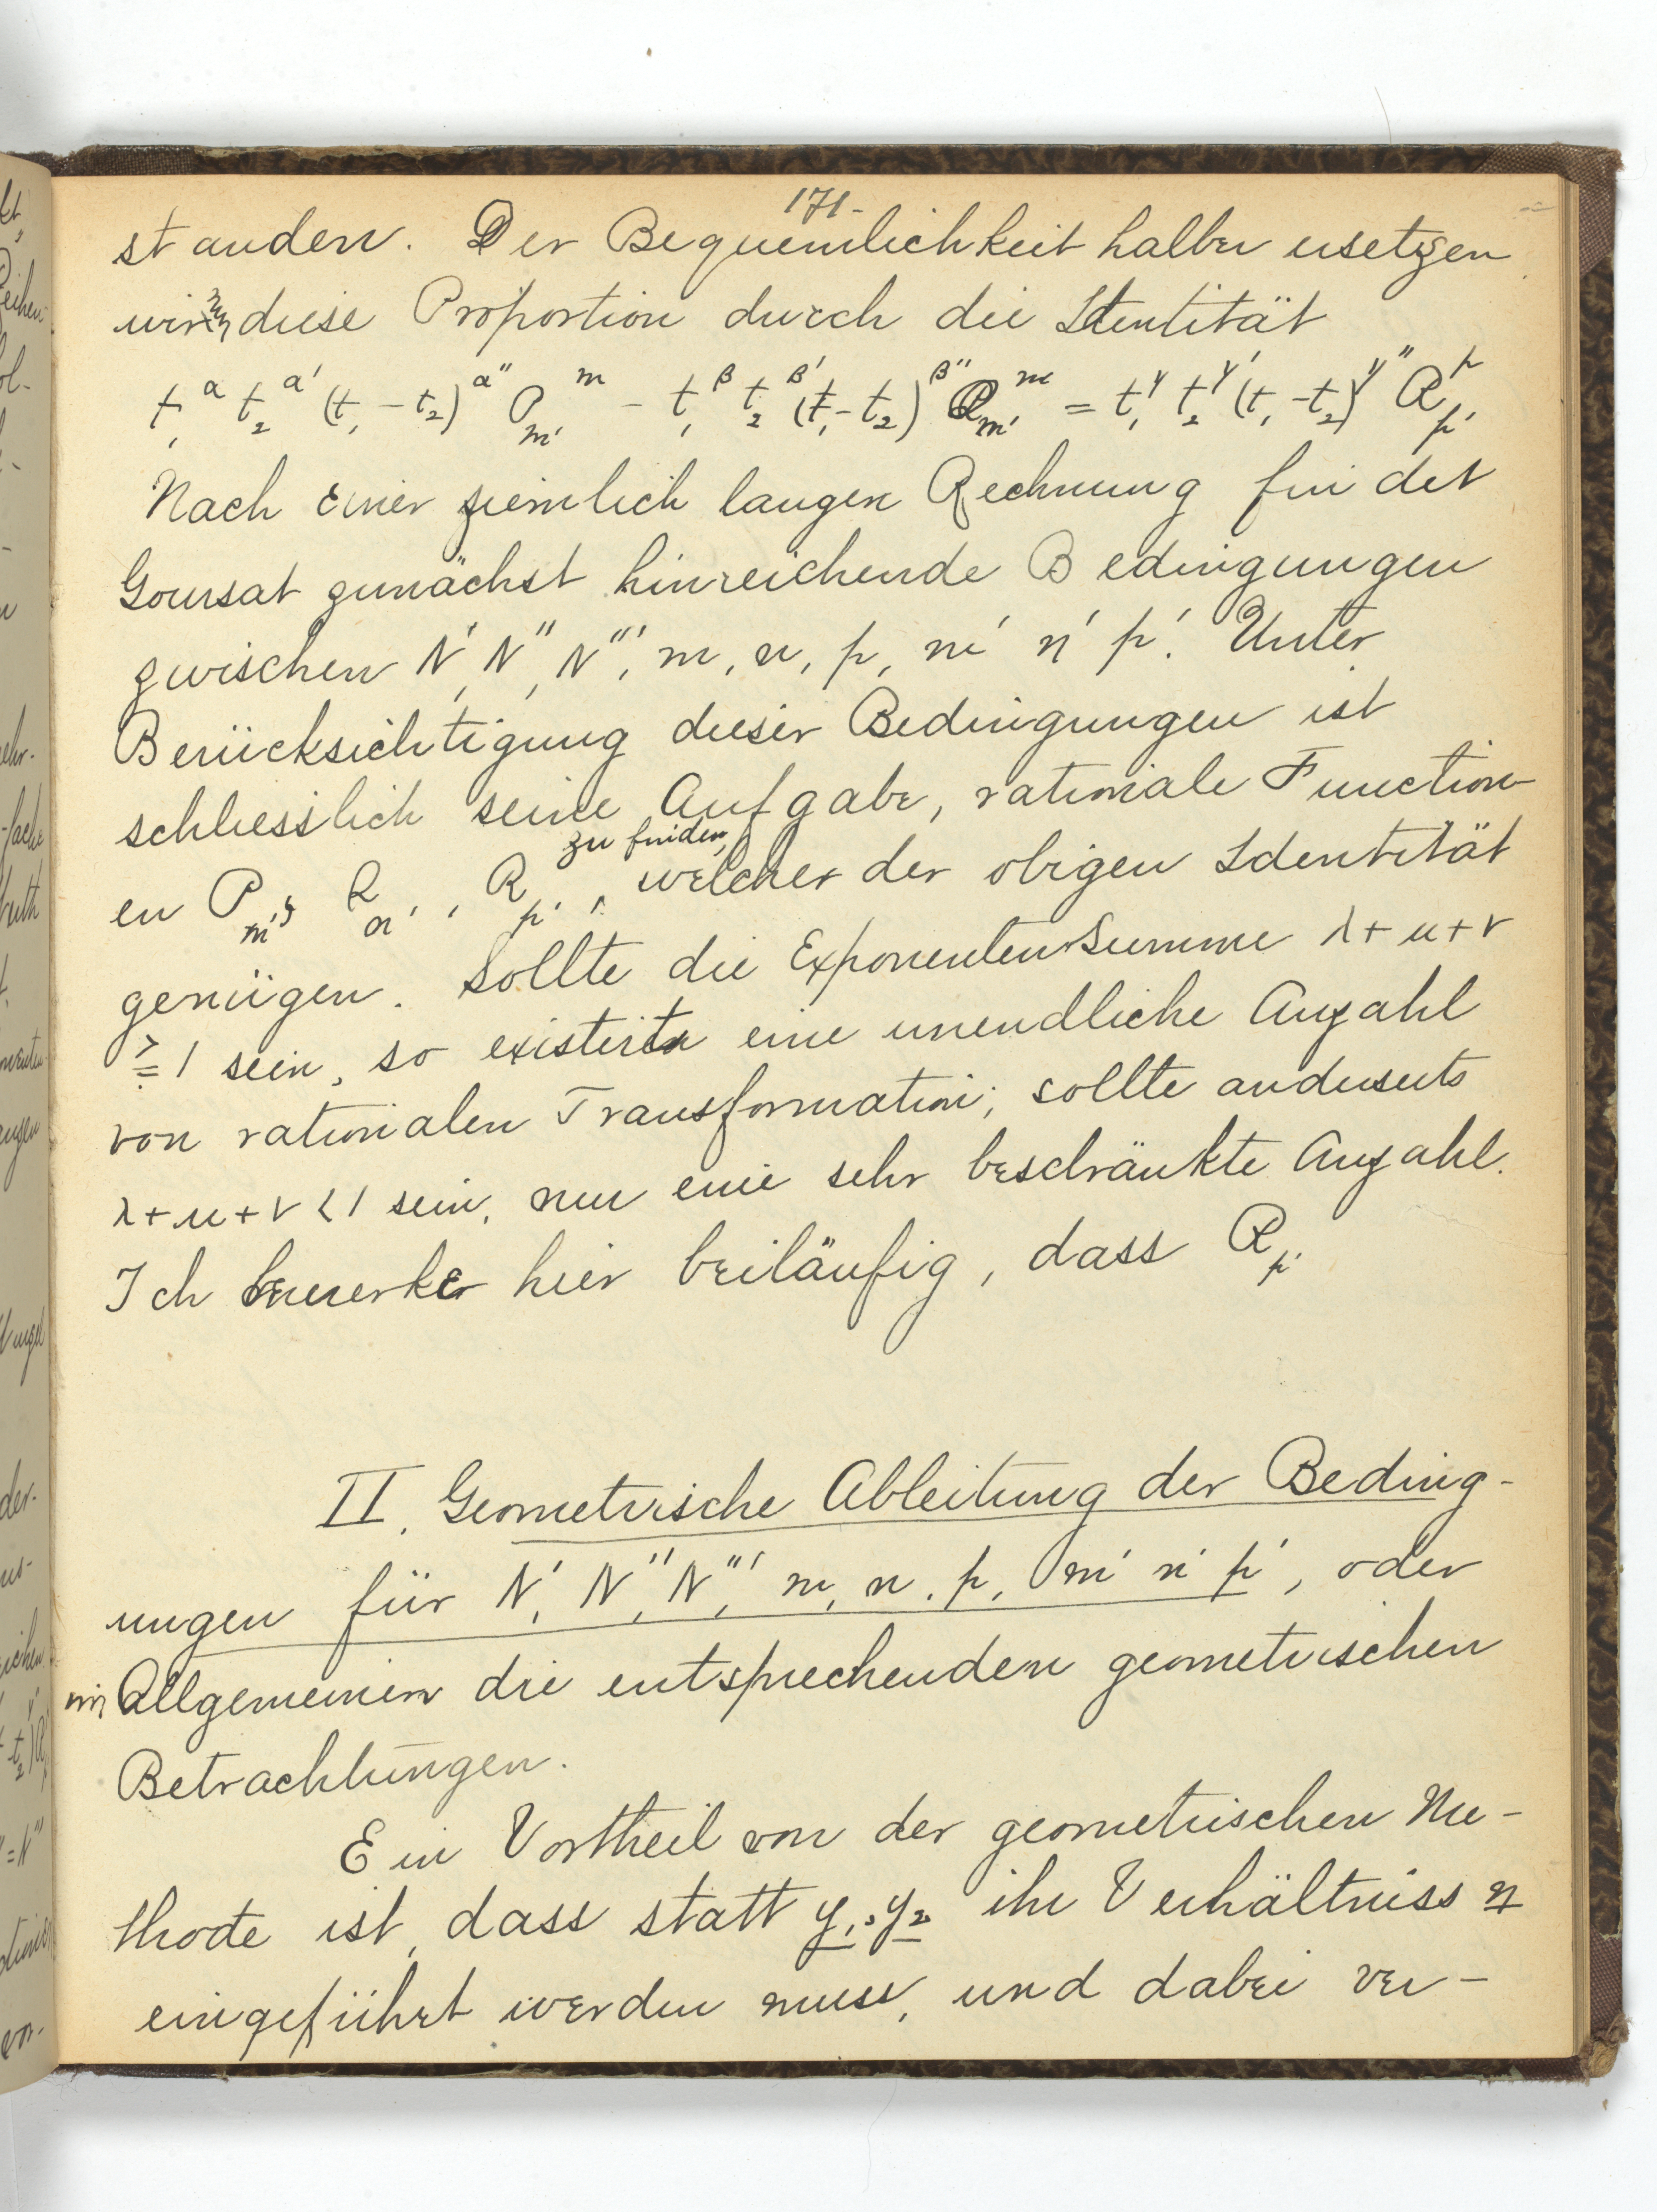 171.
standen. Der Bequemlichkeit halber ersetzen
wir diese Proportion durch die Identität
t₁^α t₂^α' (t₁ - t₂)^α'' P_m'^m - t₁^β t₂^β' (t₁ - t₂)^β'' Q_m'^m = t₁^γ t₂^γ' (t₁ - t₂)^γ'' R_p'^p
Nach einer ziemlich langen Rechnung findet
Goursat zunächst hinreichende Bedingungen
zwischen N', N'', N''', m, n, p, m' n' p'. Unter
Berücksichtigung dieser Bedingungen ist
schliesslich seine Aufgabe, rationale Function-
zu finden,
en P_m', Q_n', R_p', welcher der obigen Identität
genügen. Sollte die Exponentensumme λ + μ + ν
≧ 1 sein, so existirt eine unendliche Anzahl
von rationalen Transformation; sollte anderseits
λ + μ + ν < 1 sein, nur eine sehr beschränkte Anzahl.
Ich bemerke hier beiläufig, dass R_p'
II. Geometrische Ableitung der Beding-
ungen für N', N'', N''', m, n, p, m' n' p', oder
im Allgemeinen die entsprechenden geometrischen
Betrachtungen.
Ein Vortheil von der geometrischen Me-
thode ist, dass statt y₁, y₂ ihr Verhältniss η
eingeführt werden muss, und dabei ver-